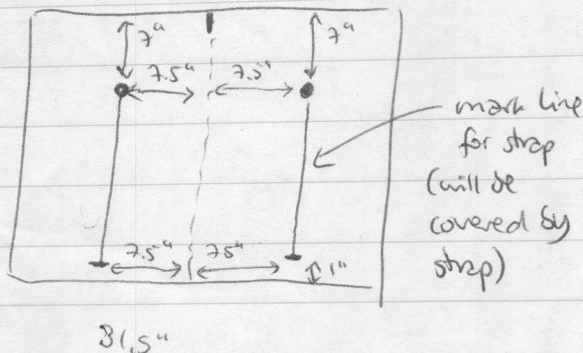 7" 7"
7.5" 7.5"
mark line
for strap
(will be
covered by
strap)
7.5" 75"
1"
31.5"